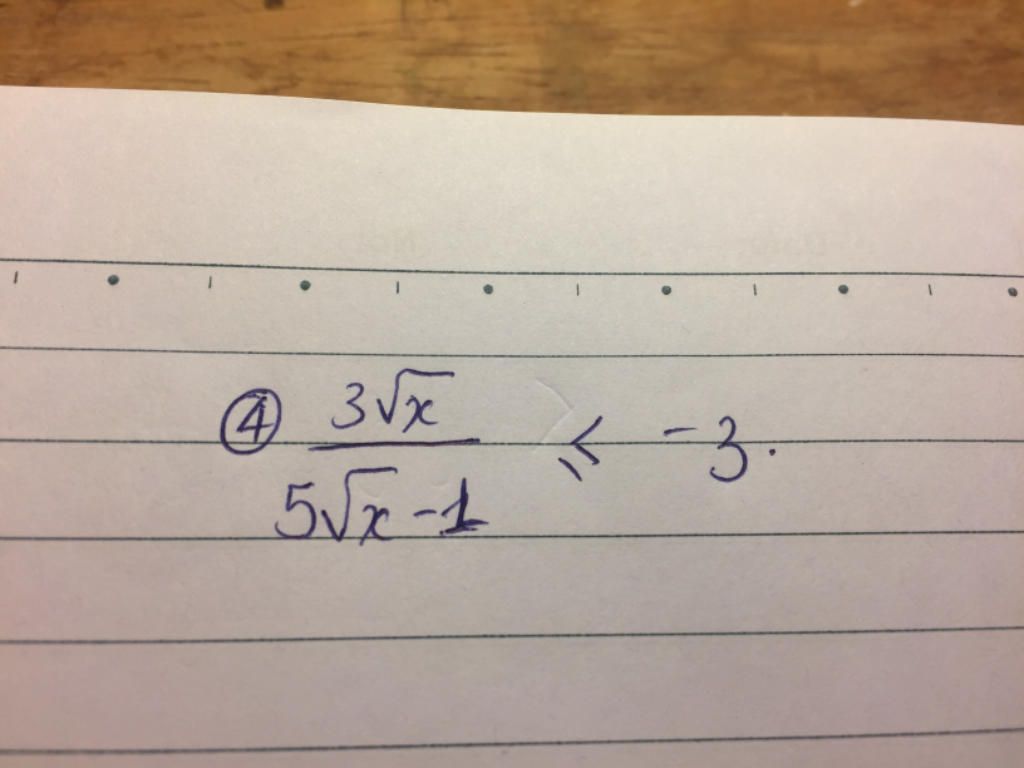 ④ 3√x / (5√x - 1) ≤ -3.